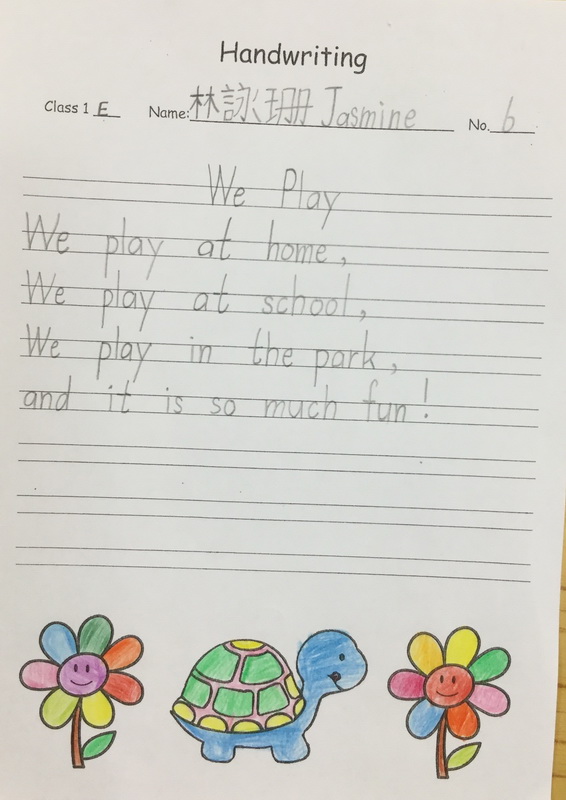 Handwriting
Class 1 E Name: 林詠珊 Jasmine No. 6
We Play
We play at home,
We play at school,
We play in the park,
and it is so much fun!